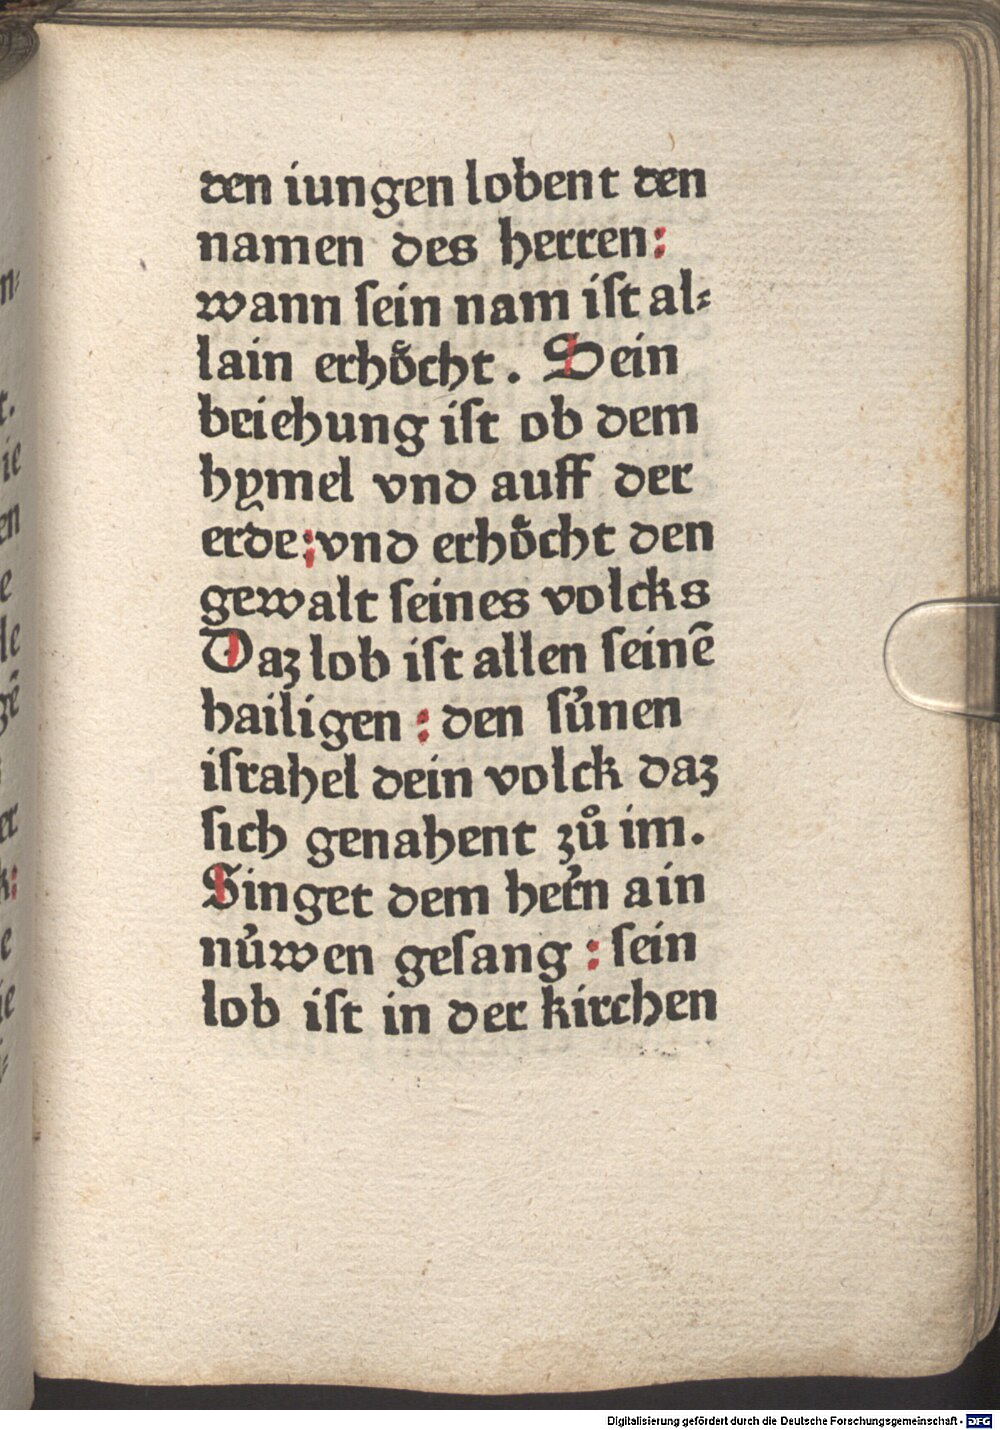 den iungen lobent den
namen des herren:
wann sein nam ist al⸗
lain erhoͤcht. Sein
beiehung ist ob dem
hymel vnd auff der
erde:vnd erhoͤcht den
gewalt seines volcks
Daz lob ist allen seinē
hailigen : den suͤnen
israhel dein volck daz
sich genahent zůim.
Singet dem hern ain
nuͤwen gesang : sein
lob ist in der kirchen
Digitalisierung gefördert durch die Deutsche Forschungsgemeinschaft - DFG